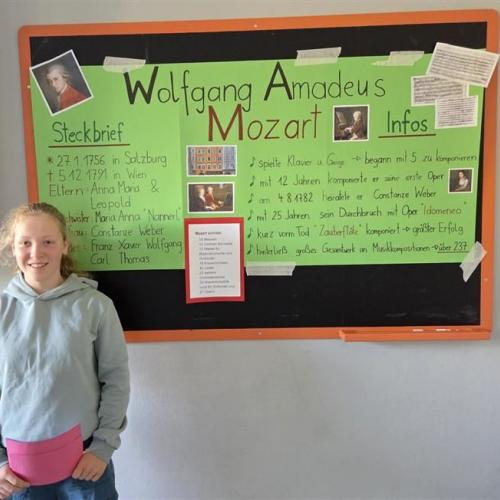 Wolfgang Amadeus
Mozart
Steckbrief
* 27.1.1756 in Salzburg
† 5.12.1791 in Wien
Eltern: Anna Maria &
Leopold
Maria Anna "Nannerl"
Constanze Weber
Franz Xaver Wolfgang
Carl Thomas
Infos
spielte Klavier u. Geige → begann mit 5 zu komponieren
mit 12 Jahren komponierte er seine erste Oper
am 4.8.1782 heiratete er Constanze Weber
mit 25 Jahren sein Durchbruch mit Oper "Idomeneo"
kurz vorm Tod "Zauberflöte" komponiert → größter Erfolg
hinterließ großes Gesamtwerk an Musikkompositionen → über 237